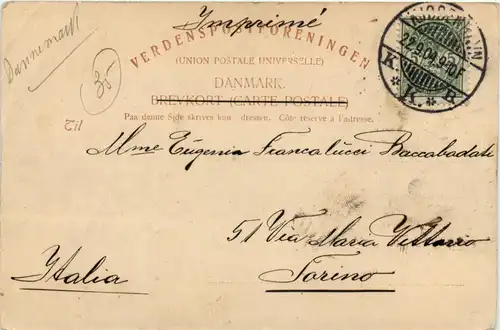 Imprimé
Dannemark
35
VERDENSPOSTFORENINGEN
(UNION POSTALE UNIVERSELLE)
DANMARK.
BREVKORT (CARTE POSTALE)
Paa denne Side skrives kun Adressen. Côté réservé à l'adresse.
22.9.04.9-10F
K.
Mme Eugenia Francalucci Baccabadati
51 Via Maria Vittorio
Torino
Italia